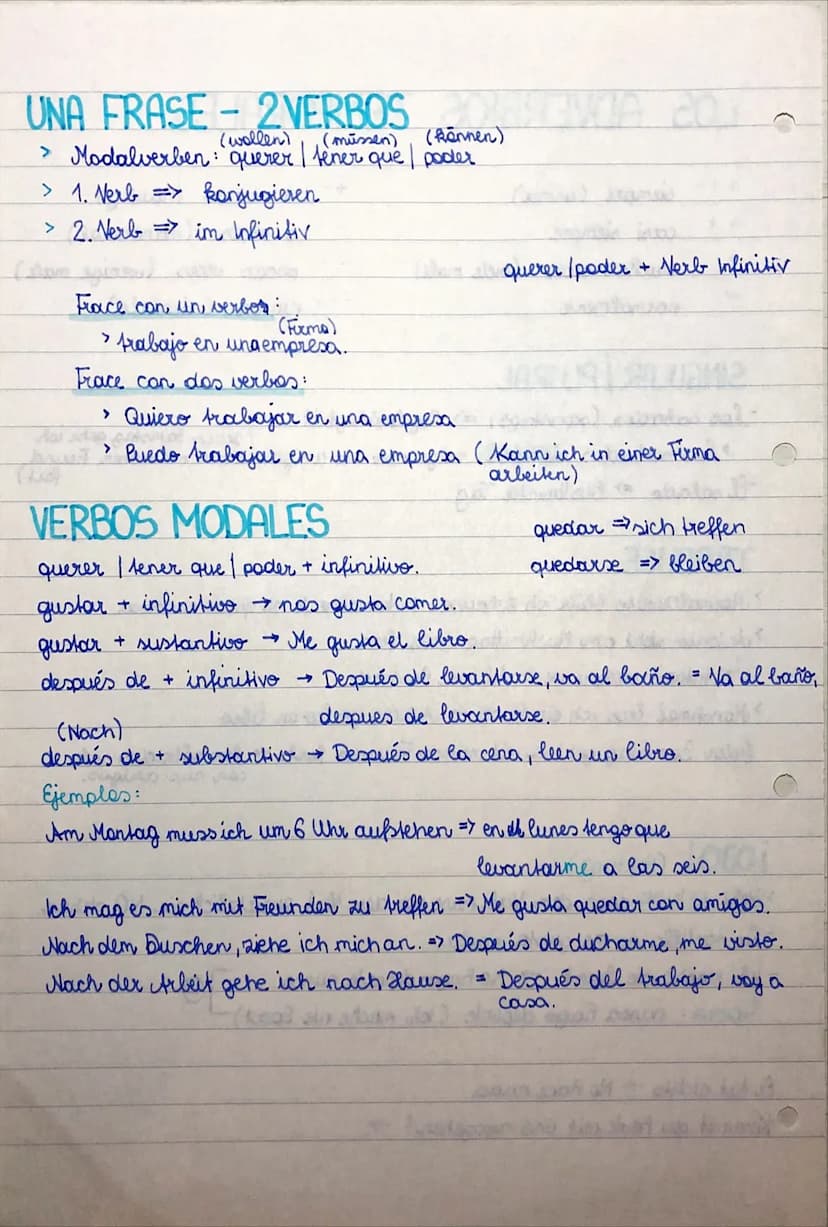 UNA FRASE - 2 VERBOS
(wollen) (müssen) (können)
> Modalverben: querer | tener que | poder
> 1. Verb => konjugieren
> 2. Verb => im Infinitiv
querer / poder + Verb Infinitiv
Frace con un verbos:
(Firma)
> trabajo en una empresa.
Frace con dos verbos:
> Quiero trabajar en una empresa
> Puedo trabajar en una empresa (Kann ich in einer Firma
arbeiten)
VERBOS MODALES
quedar => sich treffen
querer | tener que | poder + infinitivo.
quedarse => bleiben
gustar + infinitivo → nos gusta comer.
gustar + sustantivo → Me gusta el libro.
después de + infinitivo → Después de levantarse, va al baño. = Va al baño,
despues de levantarse.
(Nach)
después de + substantivo → Después de la cena, leen un libro.
Ejemplos:
Am Montag muss ich um 6 Uhr aufstehen => en el lunes tengo que
levantarme a las seis.
Ich mag es mich mit Freunden zu treffen => Me gusta quedar con amigos.
Nach dem Duschen, ziehe ich mich an. => Después de ducharme, me visto.
Nach der Arbeit gehe ich nach Hause. = Después del trabajo, voy a
casa.